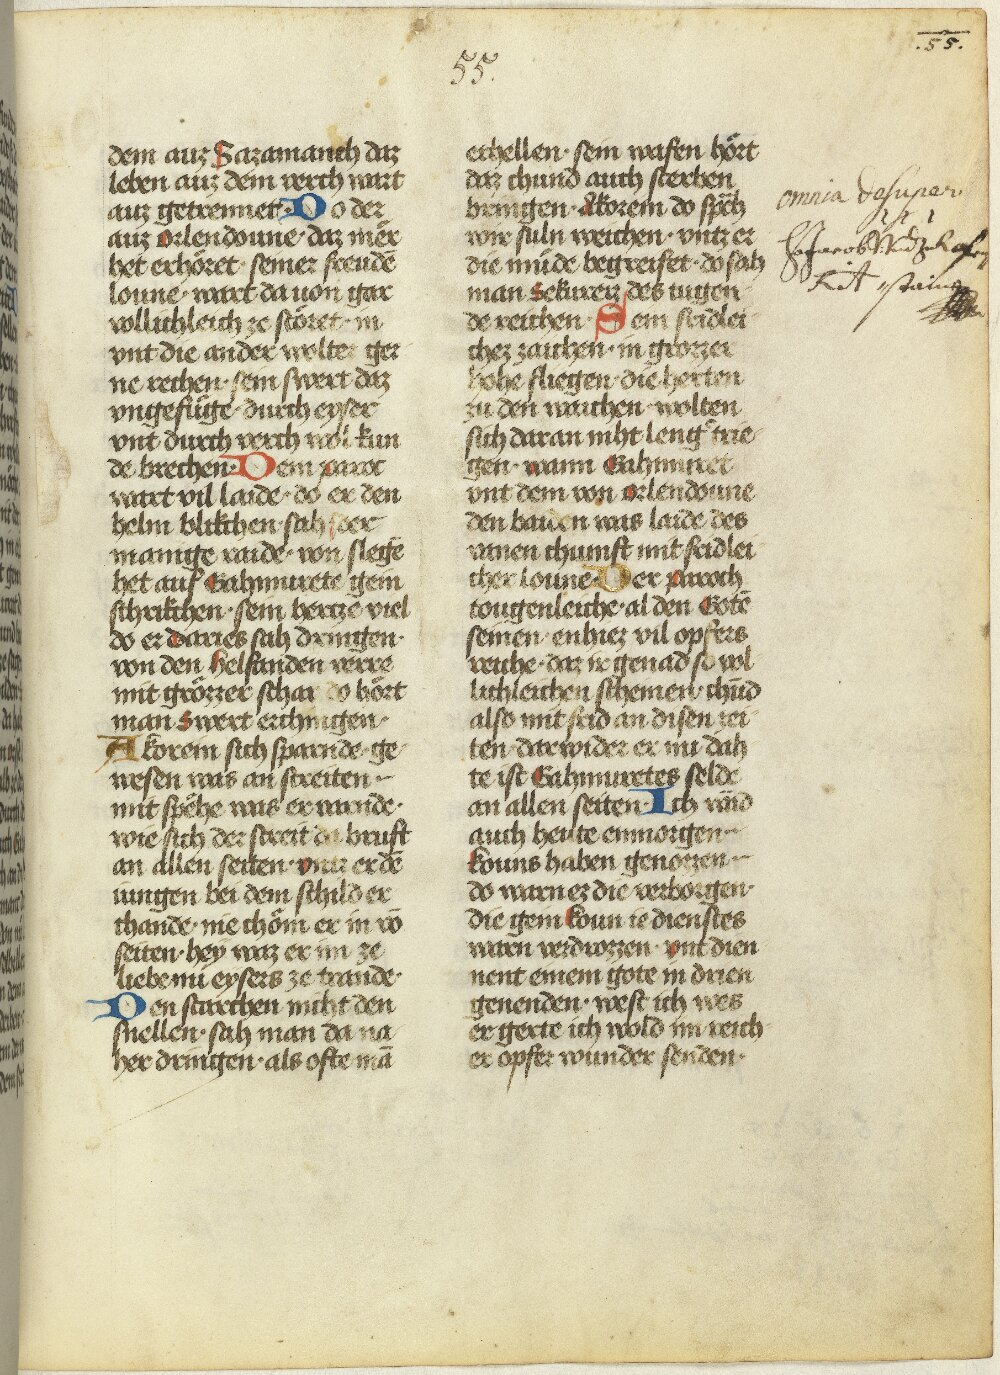 55.
.55.
dem auz Sazamanch daz
leben auz dem verch wart
auz getrennet· Do der
auz orlendoune· daz mēr
het erhöret· seiner freude
loune· wart da uon gar
vollichleich ze störet· in
vnt die ander wolten ger
ne rechen· sein swert daz
vngefüge· durch eyser
vnt durch verch wol kun
de brechen· Dem paroc
wart vil laide· do er den
helm blikchen sah der
manige raide· von slegē
het auf Gahmurete gein
schrikchen· sein hertze viel
do er daries sah dringen·
von den helfanden verre
mit grözzer schar do hört
man swert erchingen·
Akorein sich sparnde· ge
wesen was an streiten·
mit spēhe was er warnde·
wie sich der streit da bruft
an allen seiten· vntz er dē
iungen bei dem schild er
chande· nie chöm er in vō
seiten· hey waz er im ze
liebe nu eysers ze trande·
Den starchen nicht den
snellen· sah man da na
her dringen· als ofte mā
erhellen· sein wafen hört
daz chund auch sterben
bringen· Akorein do spēh
wir suln weichen· vntz er
die müde begreifet· do sah
man sekureiz des iugen
de reichen· Sein feidlei
chez zaichen· in grozzer
hohe fliegen· die herten
zu den waichen· wolten
sich daran niht leng͛ trie
gen· wann Gahmuret
vnt dem von orlendoune
den baiden was laide des
vanen chumft mit feidlei
cher loune· Der paroch
tougenleiche· al den Gotē
seinen· enhiez vil opfers
reiche· daz ir genad so vol
lichleichen scheinen· chūd
also mit frid an disen zei
ten· darwider er nu dah
te ist Gahmuretes selde
an allen seiten· Ich vind
auch heute einmorgen·
kouns haben genozzen·
do warn ez die verborgen·
die gein koun ie dienstes
warn verdrozzen· vnt dien
nent einem gote in drien
genenden· west ich wes
er gerte ich wold im reich
er opfer wunder senden·
omnia desuper.